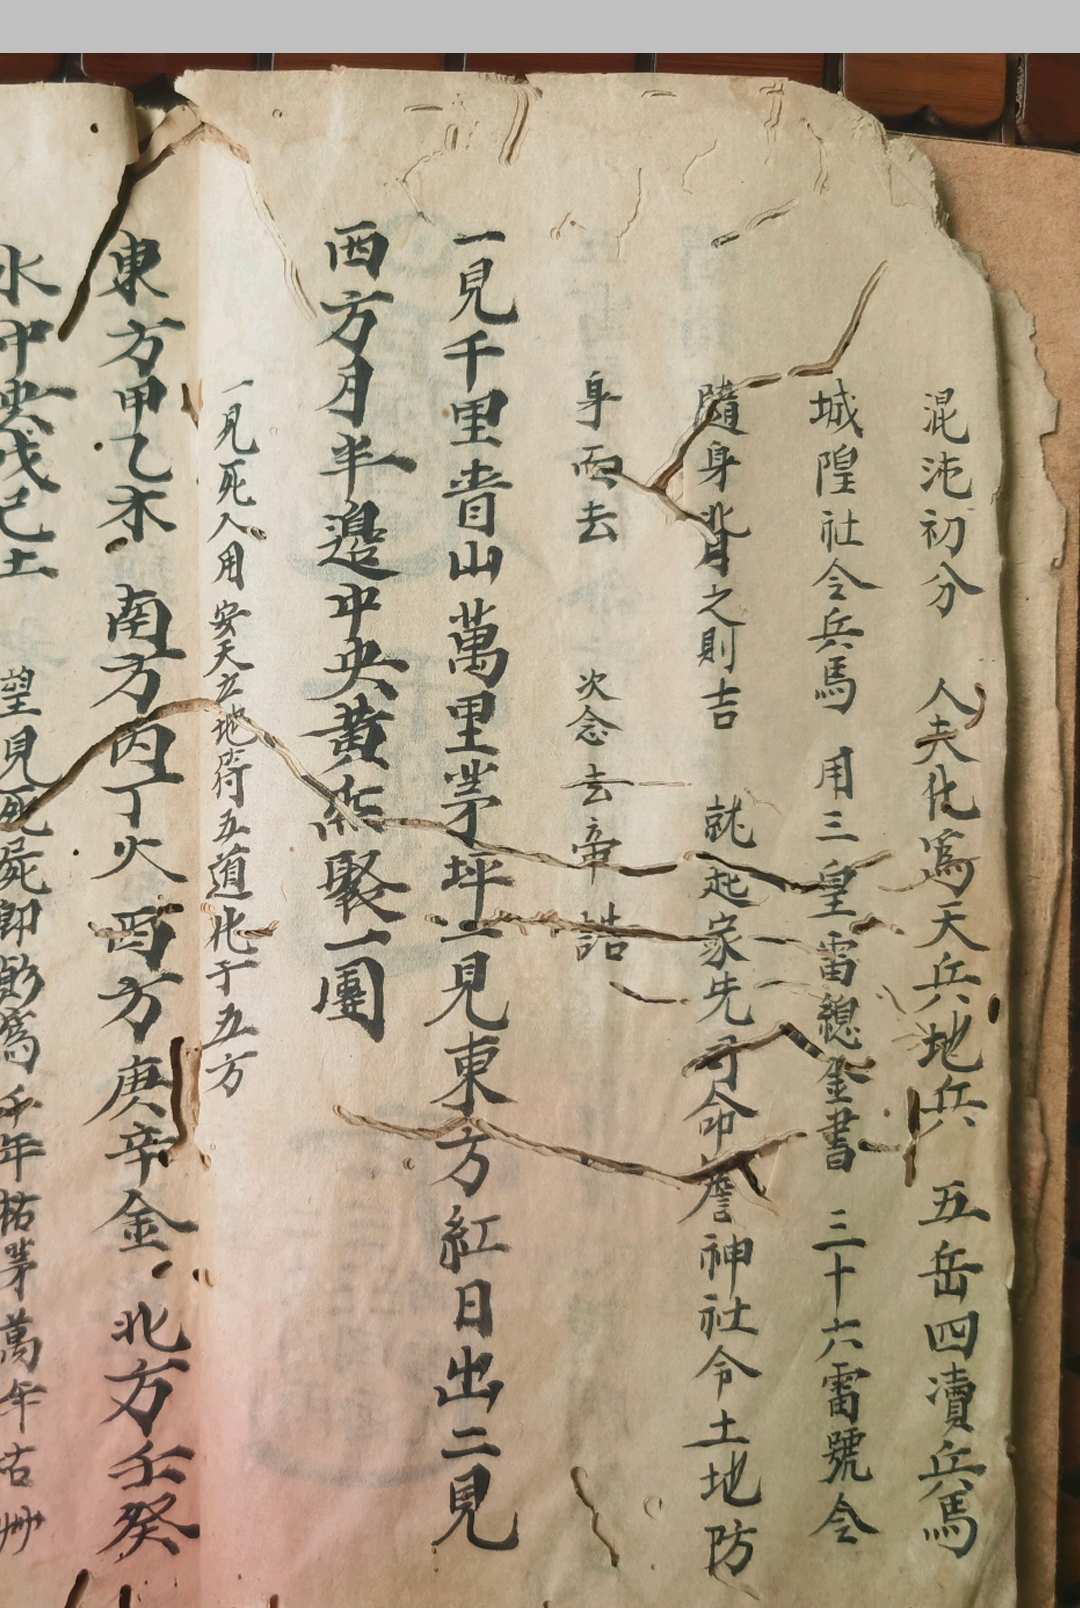 混沌初分 人夫化爲天兵地兵 五岳四瀆兵馬
城隍社令兵馬 用三皇雷總金書 三十六雷號令
隨身背之則吉 就起家先司命 神社令土地防
身而去 次念去章 誥
一見千里青山萬里茅坪一見東方紅日出二見
西方月半邊中央黄 聚一團
一見死人用安天立地符五道化于五方
東方甲乙木 南方丙丁火 西方庚辛金 北方壬癸
水中央戊己土 望見死屍即 爲千年枯茅萬年古